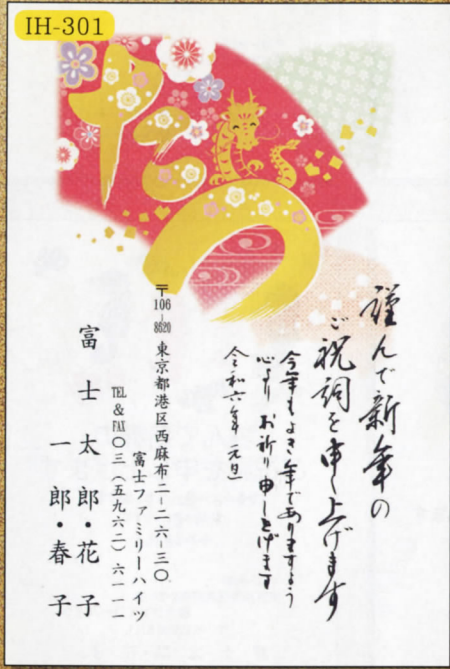 IH-301
たつ
謹んで新年の
ご祝詞を申し上げます
今年もよき年でありますよう
心より お祈り申し上げます
令和六年 元旦
〒106-8620 東京都港区西麻布二-二六-三〇
富士ファミリーハイツ
TEL&FAX〇三(五九六二)六一一一
富士太郎・花子
一郎・春子